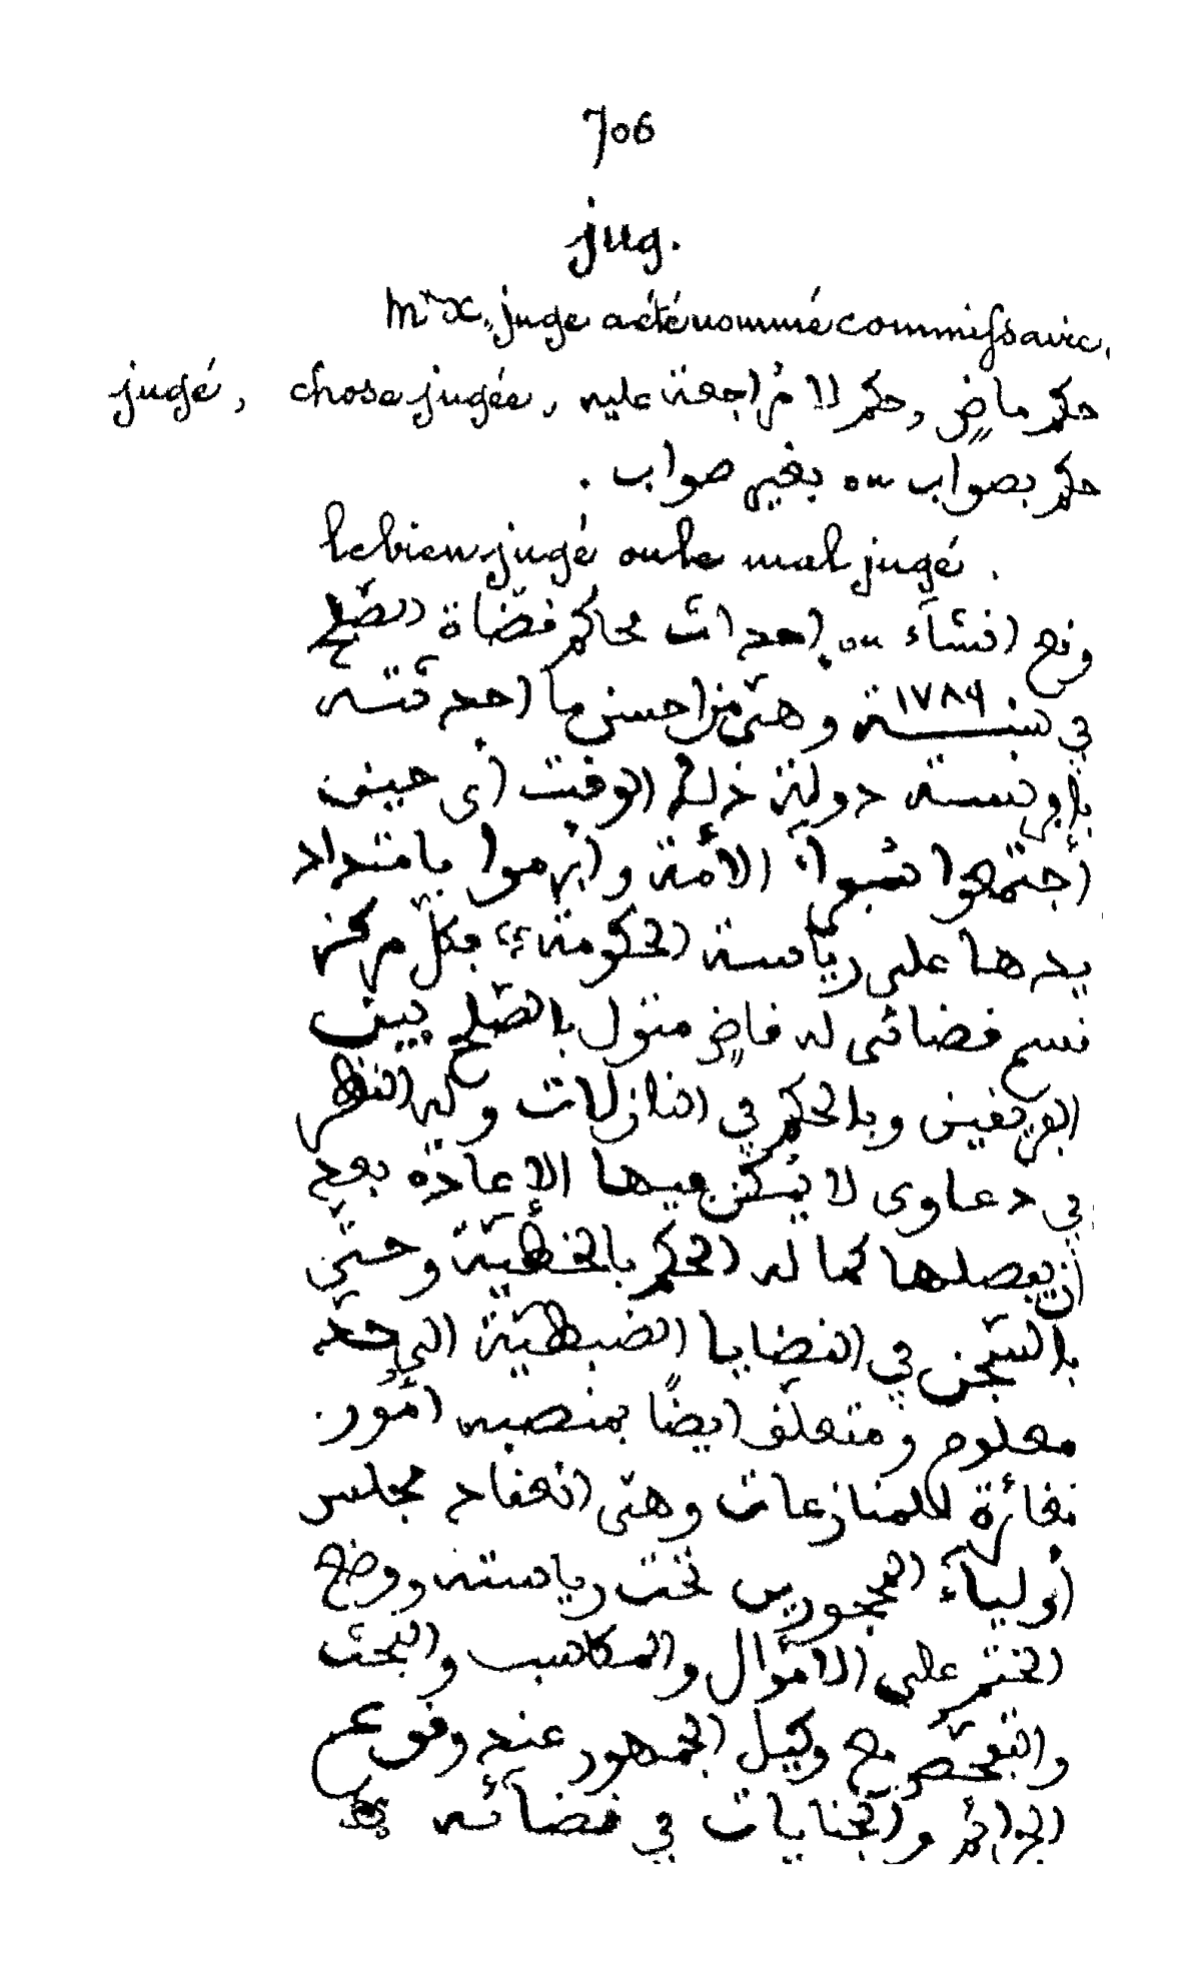 706
jug.
Mr X., juge a été nommé commissaire.
jugé, chose jugée, حكم ماضٍ وحكم لا مُراجعة عليه
حكم بصواب ou بغير صواب .
le bien jugé ou le mal jugé .
وقع انشآء ou إحداث محاكم قضّاة الصّلح
في سنة ١٧٨٩ وهي من احسن ما احدثته
بإفرنسة دولة ذلك الوقت أي حين
اجتمعوا الأمة وابرموا بامتداد
يدها على رياسة الحكومة بكلّ مركز
قسم قضائي له قاضٍ بالصّلح بين
الفريقين وبالحكم في النازلات وله النظر
في دعاوى لا يُمكن فيها الإعادة بعد
أن يفصلها كما له الحكم بالخطيّة وحتّى
بالسّجن في القضايا الضبطيّة الى حدّ
معلوم ومتعلّق ايضًا بمنصبه امُور
للمنازعات وهي انعقاد مجلس
أوليآء المحجورين تحت رياسته ووضع
الختم على الاموال والمكاسب والبحث
والتفحّص مع وكيل الجمهور عند وقوع
الجرائم والجنايات في قضآئه